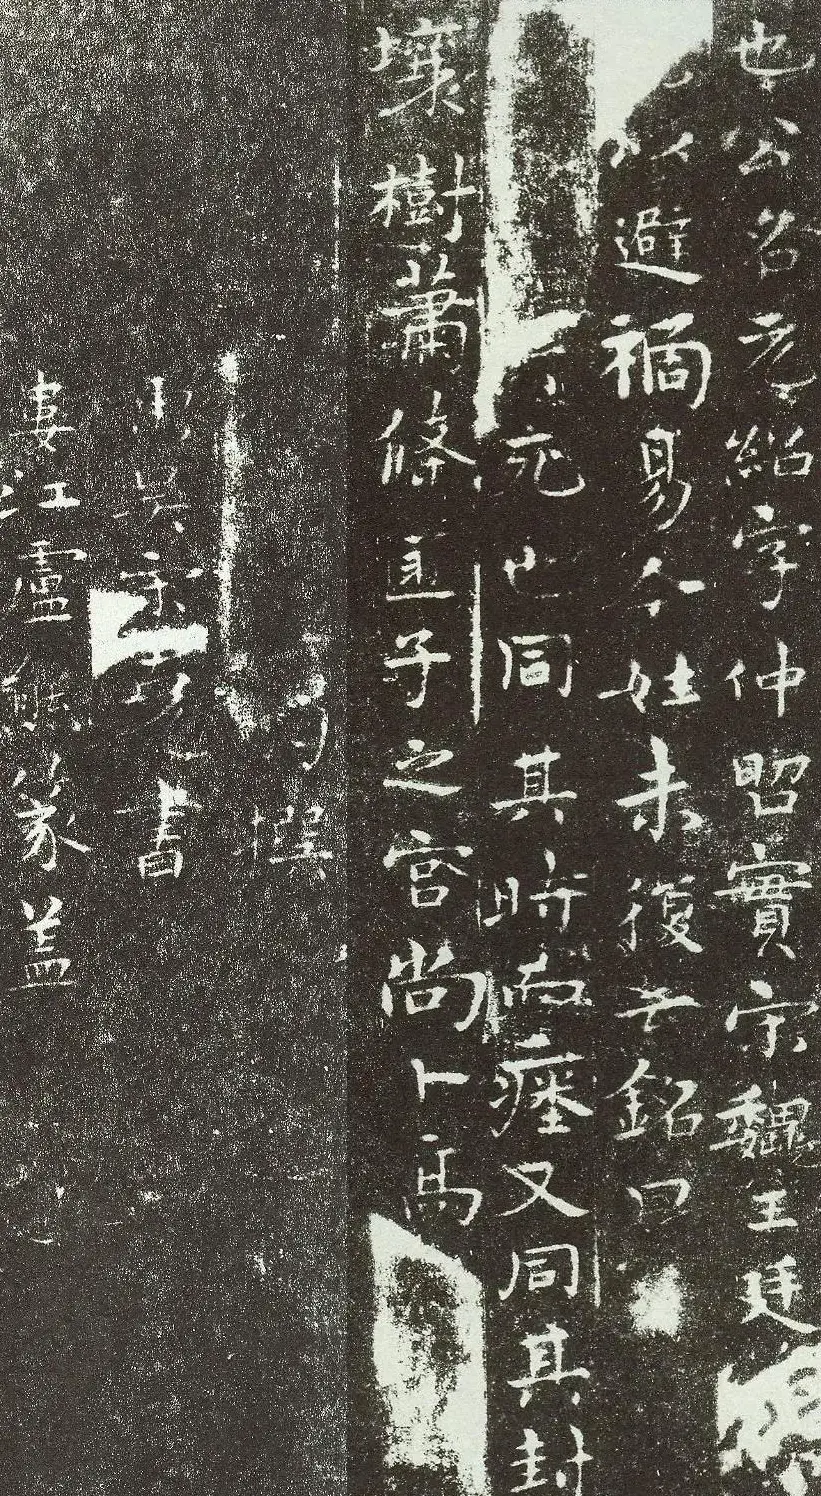 也公名元紹字仲昭實宋魏王廷
以避禍易今姓未復云銘曰
死也同其時而瘞又同其封
壤樹蕭條匪子之宮尚卜高
羽撰
東吳宋克書
婁江盧熊篆蓋